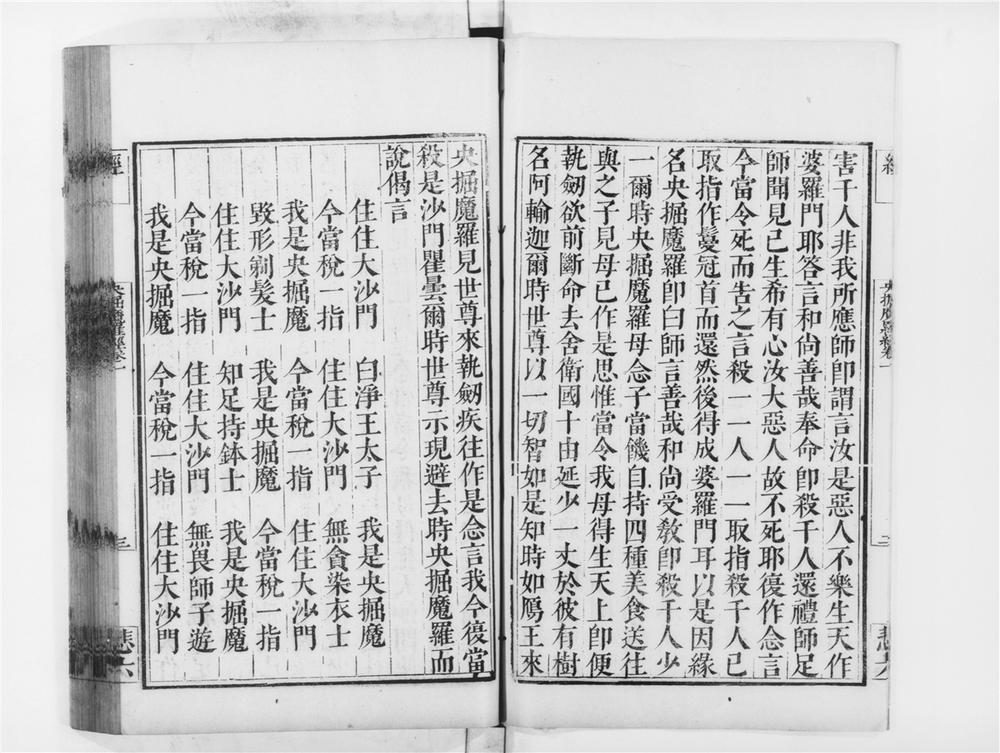 害千人非我所應師即謂言汝是惡人不樂生天作
婆羅門耶答言和尚善哉奉命即殺千人還禮師足
師聞見已生希有心汝大惡人故不死耶復作念言
今當令死而告之言殺一一人一一取指殺千人已
取指作鬘冠首而還然後得成婆羅門耳以是因緣
名央掘魔羅即白師言善哉和尚受教即殺千人少
一爾時央掘魔羅母念子當饑自持四種美食送往
與之子見母已作是思惟當令我母得生天上即便
執劒欲前斷命去舍衛國十由延少一丈於彼有樹
名阿輸迦爾時世尊以一切智如是知時如鴈王來
央掘魔羅見世尊來執劒疾往作是念言我今復當
殺是沙門瞿曇爾時世尊示現避去時央掘魔羅而
說偈言
住住大沙門 白淨王太子 我是央掘魔
今當稅一指 住住大沙門 無貪染衣士
我是央掘魔 今當稅一指 住住大沙門
毀形剃髮士 我是央掘魔 今當稅一指
住住大沙門 知足持鉢士 我是央掘魔
今當稅一指 住住大沙門 無畏師子遊
我是央掘魔 今當稅一指 住住大沙門
經 央掘魔羅經卷一 三 悲六